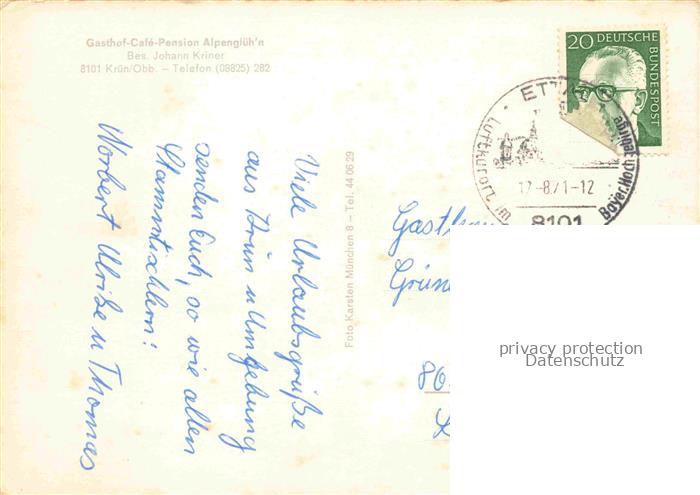 Gasthof-Café-Pension Alpenglüh'n
Bes. Johann Kriner
8101 Krün/Obb. – Telefon (08825) 282
20 DEUTSCHE
BUNDESPOST
ETT
Luftkurort im
Bayer. Hochgebirge
17-8.71-12
8101
Viele Urlaubsgrüße
aus Krün u Umgebung
senden Euch, so wie allen
Stammtischlern!
Norbert Ulrike u Thomas
Foto Karsten München 8 – Tel. 44 06 29
Gasthau
Grün
80
privacy protection
Datenschutz